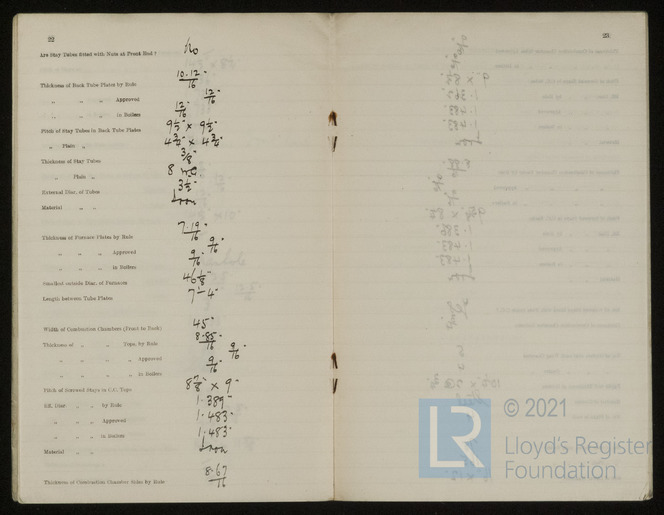 22
Are Stay Tubes fitted with Nuts at Front End? No
Thickness of Back Tube Plates by Rule 10.12/16"
" " " Approved 12/16"
" " " in Boilers 12/16"
Pitch of Stay Tubes in Back Tube Plates 9½" x 9½"
" Plain " 4¾" x 4¾"
Thickness of Stay Tubes 3/8"
" Plain " 8 W.G.
External Diar. of Tubes 3½"
Material " " Iron
Thickness of Furnace Plates by Rule 7.19/16"
" " " Approved 9/16"
" " " in Boilers 9/16"
Smallest outside Diar. of Furnaces
Length between Tube Plates 7'-4"
Width of Combustion Chambers (Front to Back) 45"
Thickness of " " Tops, by Rule 8.85/16"
" " " " Approved 9/16"
" " " " in Boilers 9/16"
Pitch of Screwed Stays in C.C. Tops 8⅞" x 9"
Eff. Diar. " " by Rule 1.389"
" " " Approved 1.483"
" " " in Boilers 1.483"
Material " " Iron
Thickness of Combustion Chamber Sides by Rule 8.67/16"
23
© 2021
LR
Lloyd's Register
Foundation